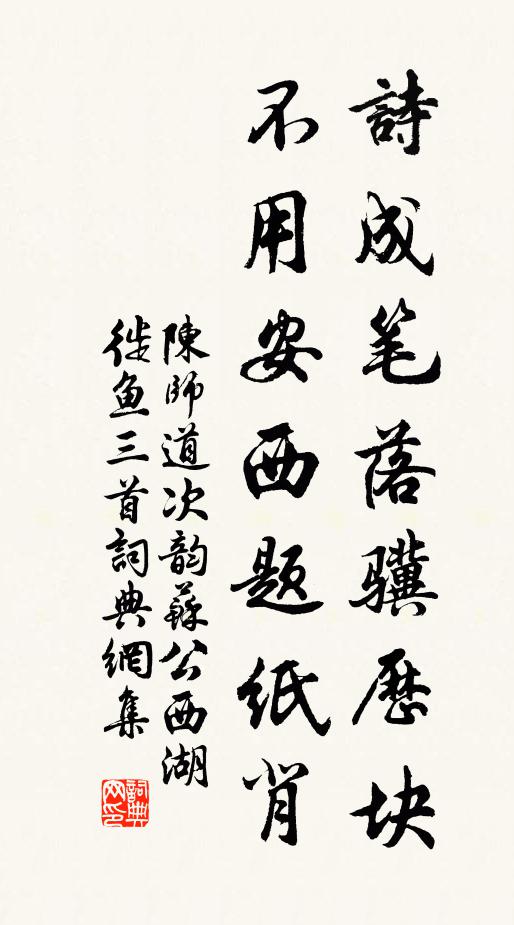 詩成笔落骥歷块
不用安西题紙背
陳師道次韵蘇公西湖
徙鱼三首詞典網集
詞典网印